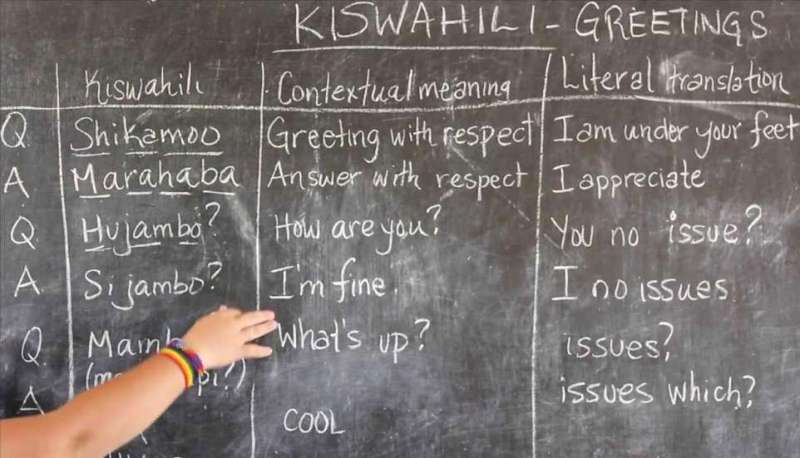 KISWAHILI - GREETINGS
Kiswahili Contextual meaning Literal translation
Q Shikamoo Greeting with respect I am under your feet
A Marahaba Answer with respect I appreciate
Q Hujambo? How are you? You no issue?
A Sijambo? I'm fine. I no issues
Q What's up? issues?
issues which?
A COOL